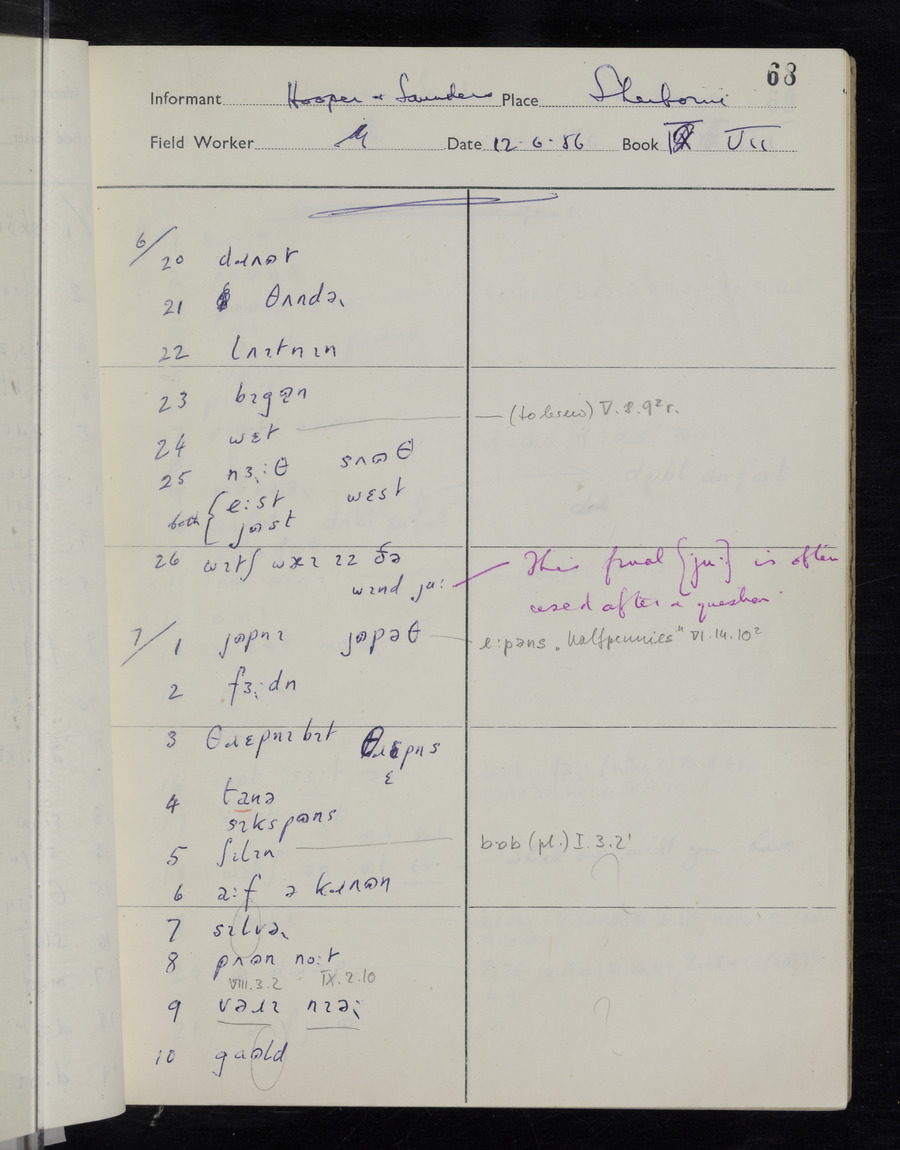 68
Informant Hooper & Saunders Place Sherborne
Field Worker Date 12.6.56 Book VII
6/20 dɹʌʊt
21 θʌndə˞
22 lʌɪtnɪn
23 bɪgɷ̞n
24 wɛt — (to brew) V.8.9²r.
25 nɜ˞:θ sʌʊθ
both { e:st wɛst
jʊst
26 wɪtʃ wæɪ ɪz ðə
wɪnd ju: This final [ju:] is often
used after a question.
7/1 jʊpnɪ jʊpəθ — e:pəns "halfpennies" VI.14.10²
2 fɜ˞:dn
3 θɹɛpnɪbɪt θɹɛpns
ɛ
4 tanə
sɪkspəns
5 ʃɪlɪn bɒb (pl.) I.3.2'
6 a:f ə kɹʌʊn
7 sɪlvə˞
8 pʌʊn no:t
VIII.3.2 IX.2.10
9 vəɹɪ nɪə˞
10 gaʊld